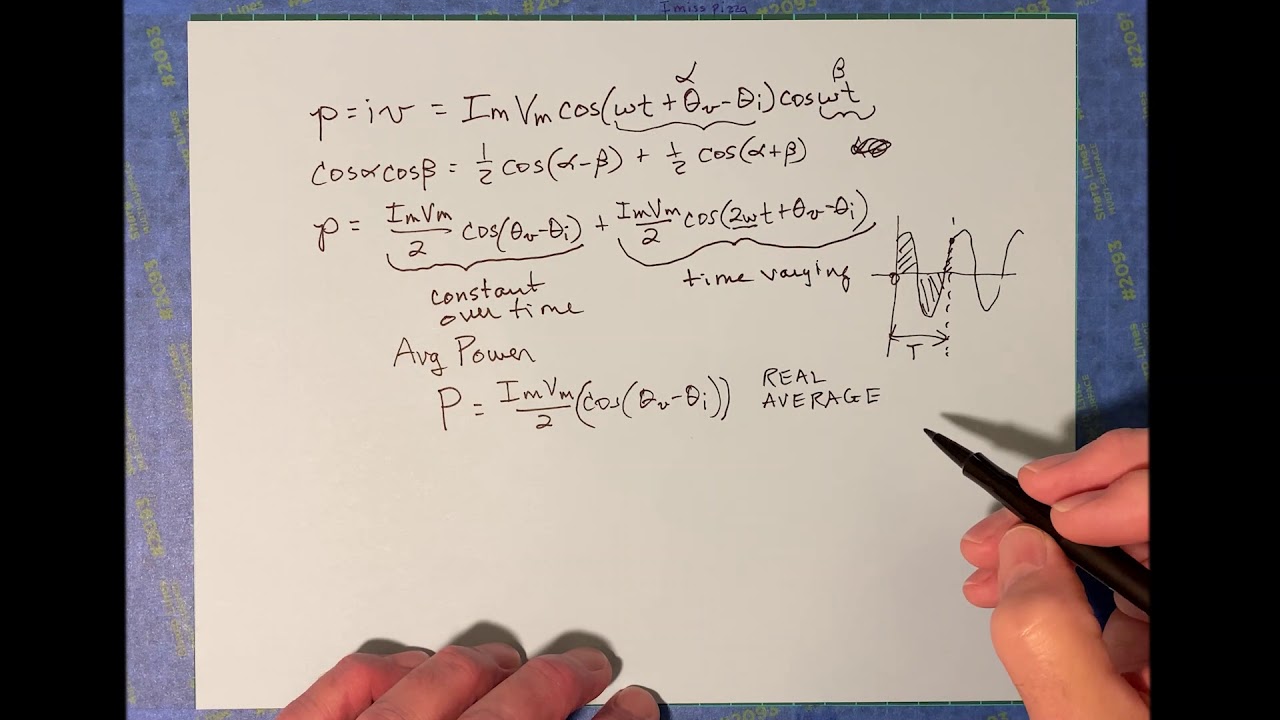 I miss pizza
α β
p = iv = ImVm cos(ωt + θv - θi) cos ωt
cosαcosβ = 1/2 cos(α-β) + 1/2 cos(α+β)
p = ImVm/2 cos(θv-θi) + ImVm/2 cos(2ωt+θv-θi)
constant
over time
time varying
T
Avg Power
P = ImVm/2 (cos(θv-θi))
REAL
AVERAGE
#2093
#2093
#2093
#2093
#2093
#2093
Sharp Lines
MULTI-SURFACE
Sharp Lines